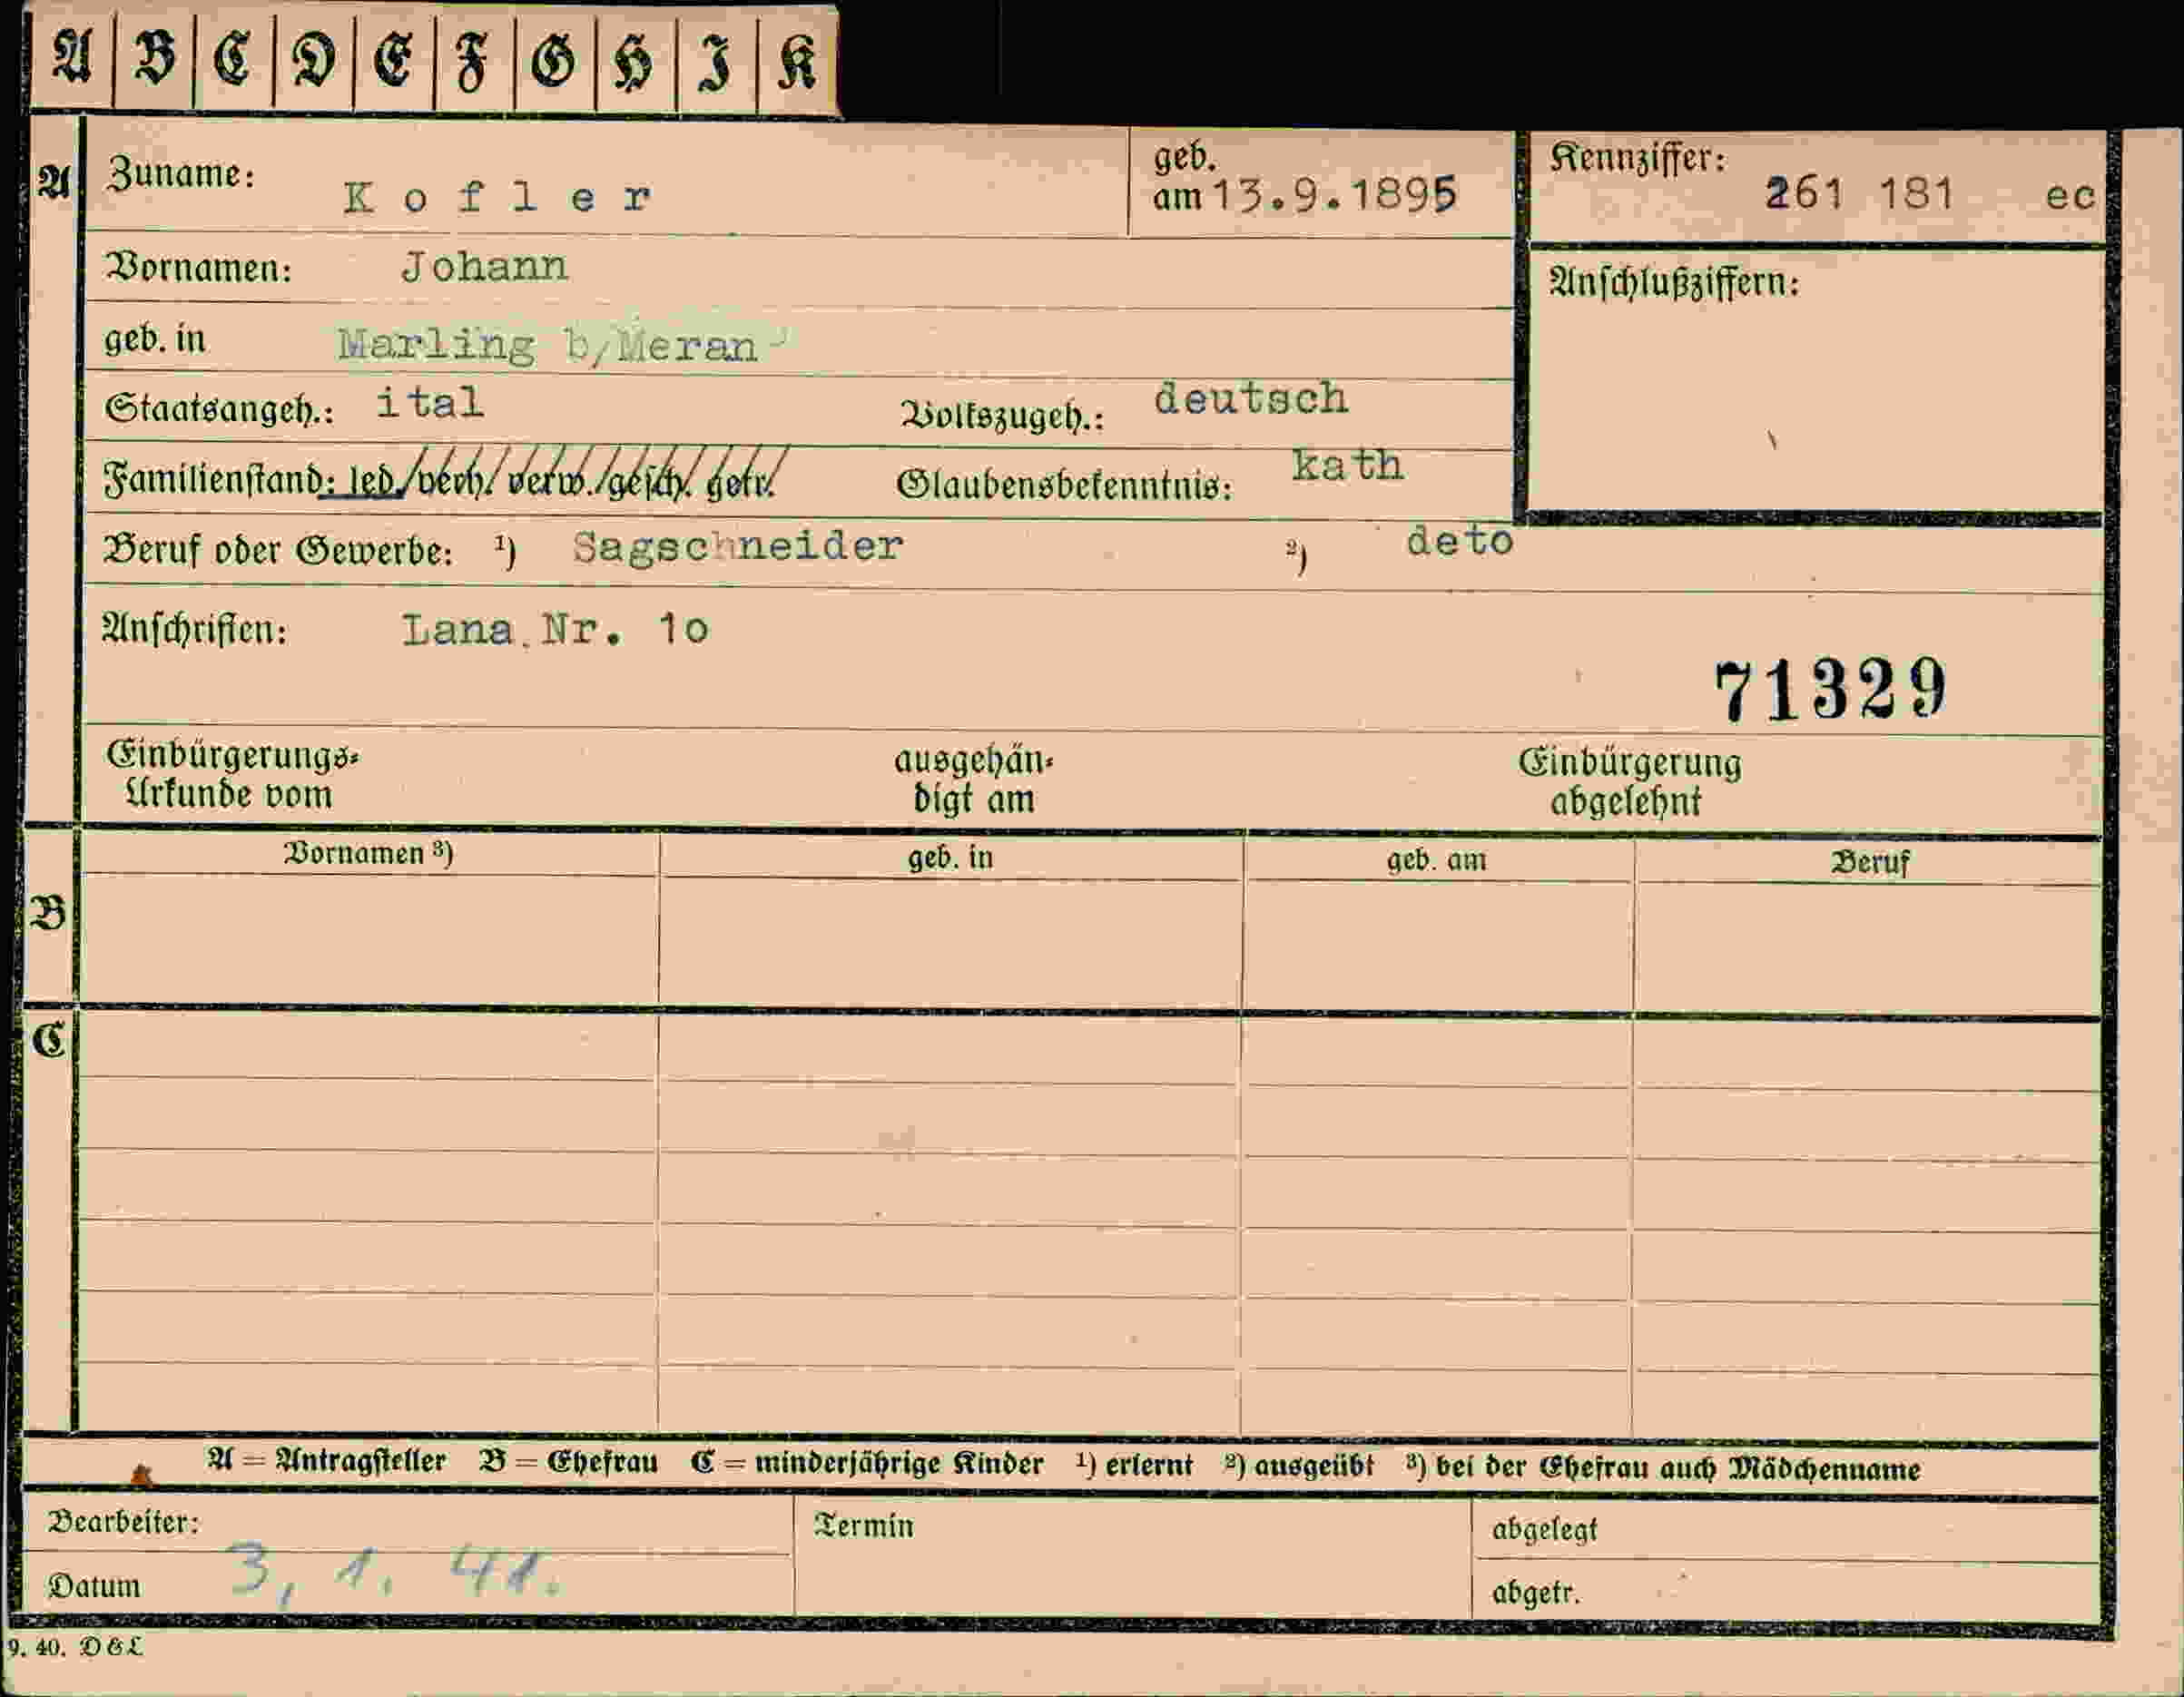 A B C D E F G H I K
A Zuname: Kofler geb. am 13.9.1895 Kennziffer: 261 181 ec
Vornamen: Johann Anschlußziffern:
geb. in Marling b/Meran
Staatsangeh.: ital Volkszugeh.: deutsch
Familienstand: led./verh./verw./gesch. getr. Glaubensbekenntnis: kath
Beruf oder Gewerbe: ¹) Sagschneider ²) deto
Anschriften: Lana.Nr. 1o
71329
Einbürgerungs= ausgehän= Einbürgerung
Urkunde vom digt am abgelehnt
Vornamen ³) geb. in geb. am Beruf
B
C
A = Antragsteller B = Ehefrau C = minderjährige Kinder ¹) erlernt ²) ausgeübt ³) bei der Ehefrau auch Mädchenname
Bearbeiter: Termin abgelegt
Datum 3, 1. 41. abgetr.
9. 40. D&L